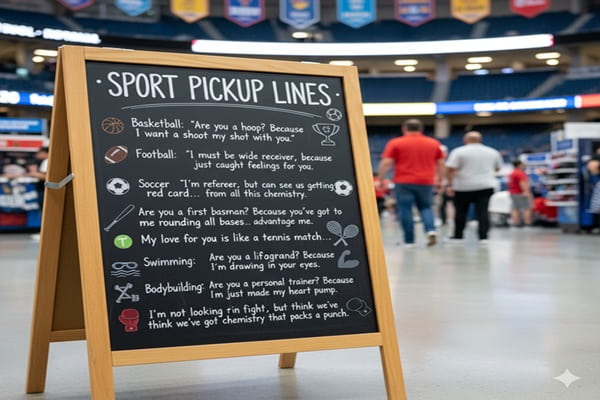 SPORT PICKUP LINES
Basketball: "Are you a hoop? Because
I want a shoot my shot with you."
Football: "I must be wide receiver, because
just caught feelings for you.
Soccer "I'm referer, but can see us getting
red card... from all this chemistry.
Are you a first basman? Because you've got to
me rounding all bases.. advantage me.
T My love for you is like a tennis match...
Swimming: Are you a lifagrand? Because
I'm drawing in your eyes.
Bodybuilding: Are you a personal trainer? Because
I'm just made my heart pump.
I'm not looking rin fight, but think we've
think we've got chemistry that packs a punch.